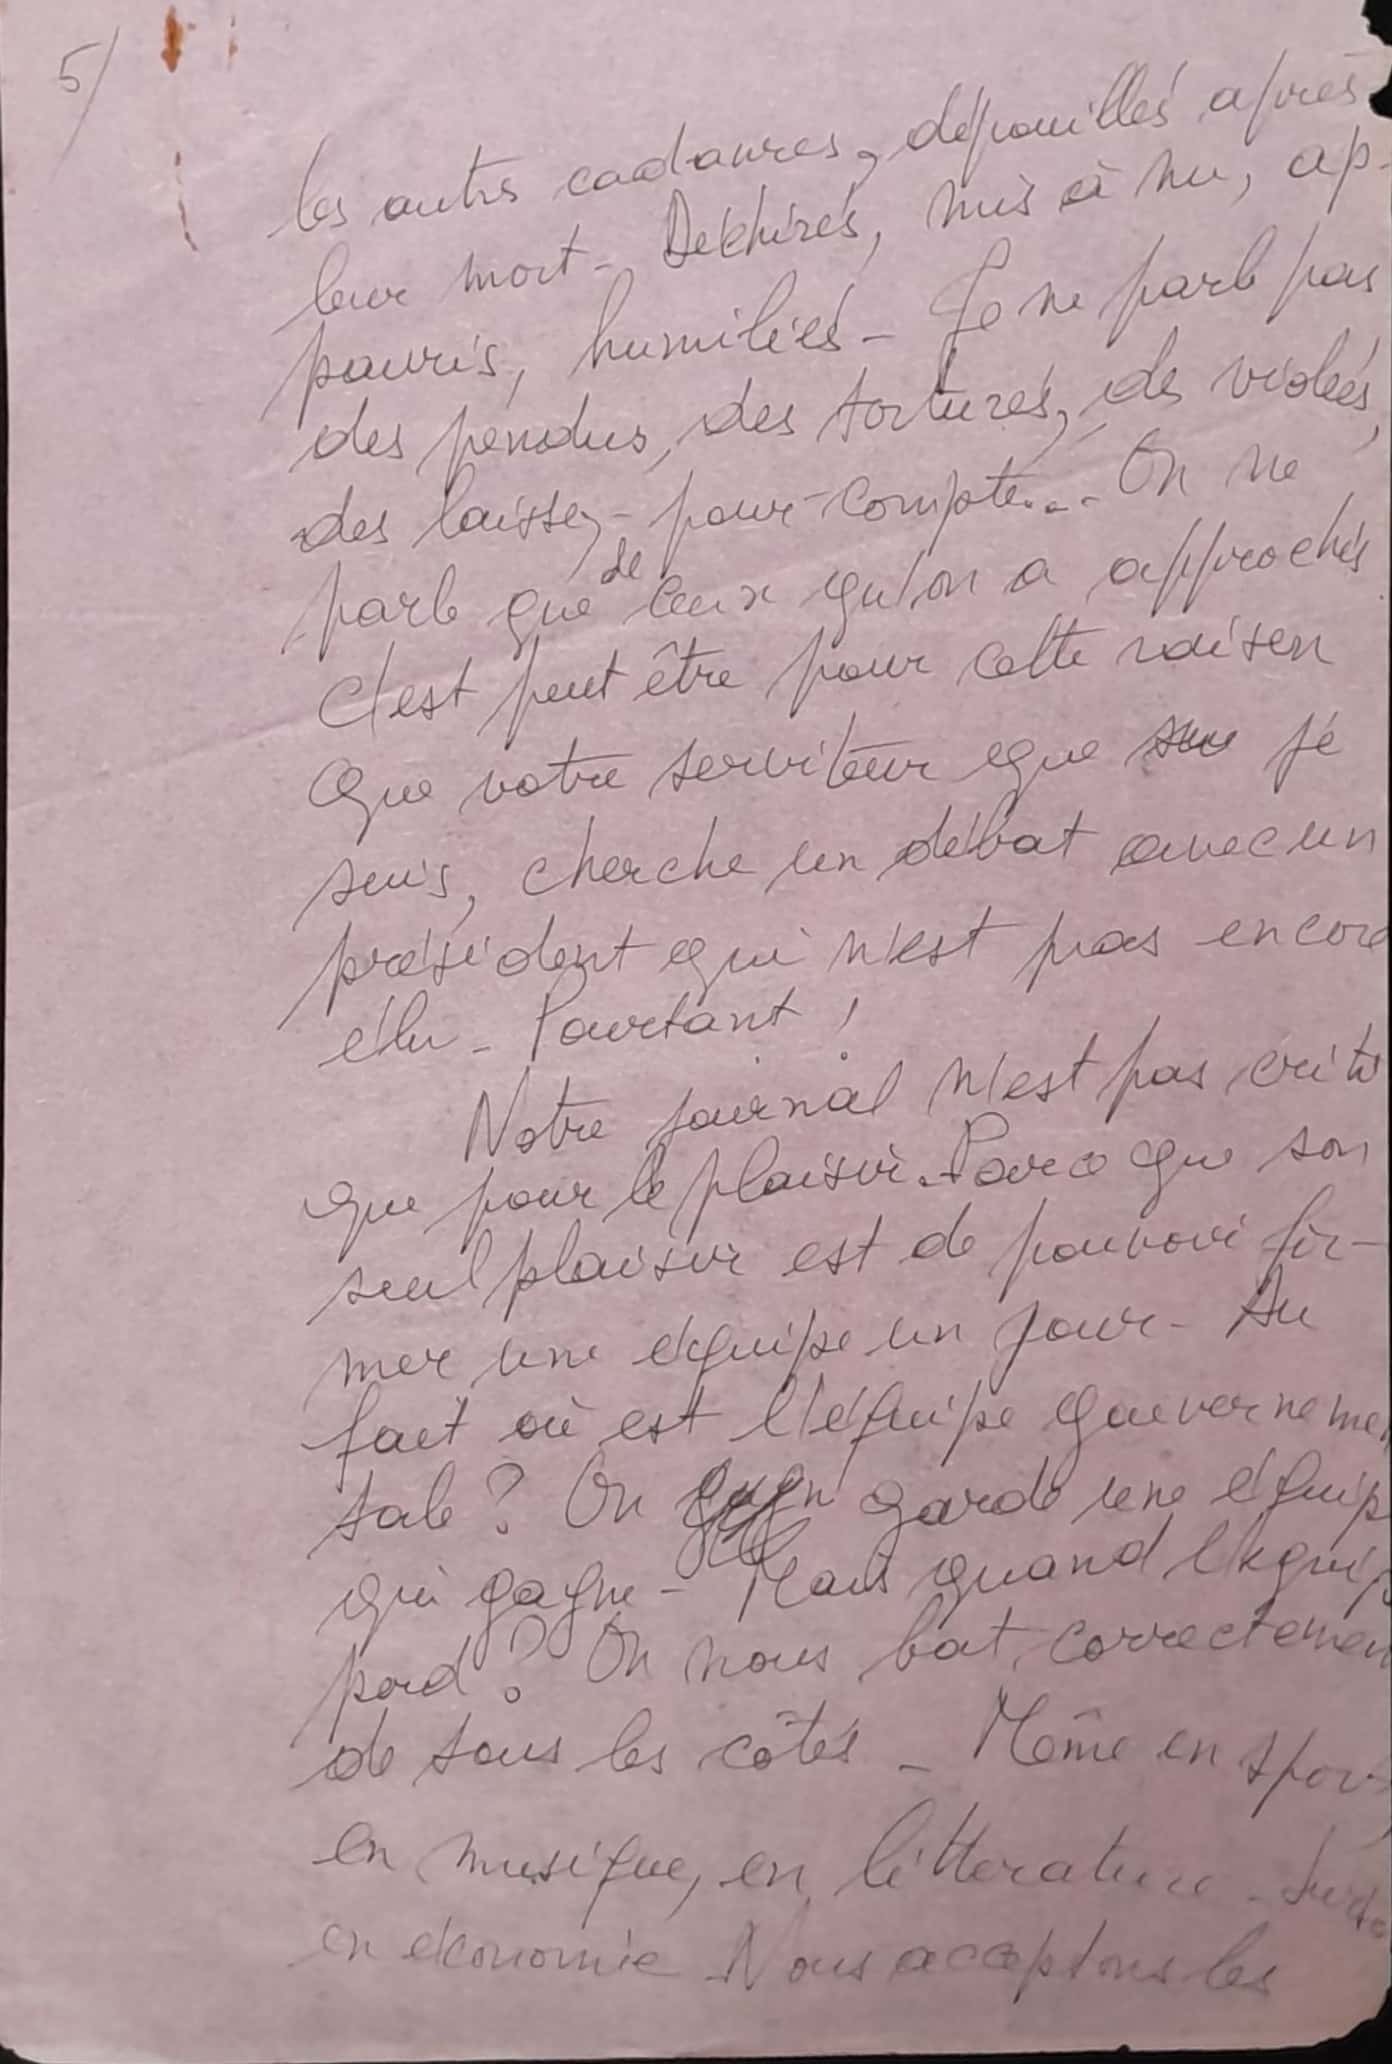 5/
les autres cadavres, dépouillés après
leur mort - Déchirés, mis à nu, ap-
pauvris, humiliés - Je ne parle pas
des pendus, des torturés, des violés,
des laissez-pour-compte... On ne
parle que de ceux qu'on a approchés
C'est peut être pour cette raison
que votre serviteur que je
suis, cherche un débat avec un
président qui n'est pas encore
élu - Pourtant !
Notre journal n'est pas criti
que pour le plaisir. Parce que son
seul plaisir est de pouvoir for-
mer une équipe un jour - Au
fait où est l'équipe gouvernemen
tale ? On garde une équip
qui gagne - Mais quand l'équip
perd ? On nous bat correctemen
de tous les côtés - Même en spor
en musique, en littérature -
en économie Nous acceptons les